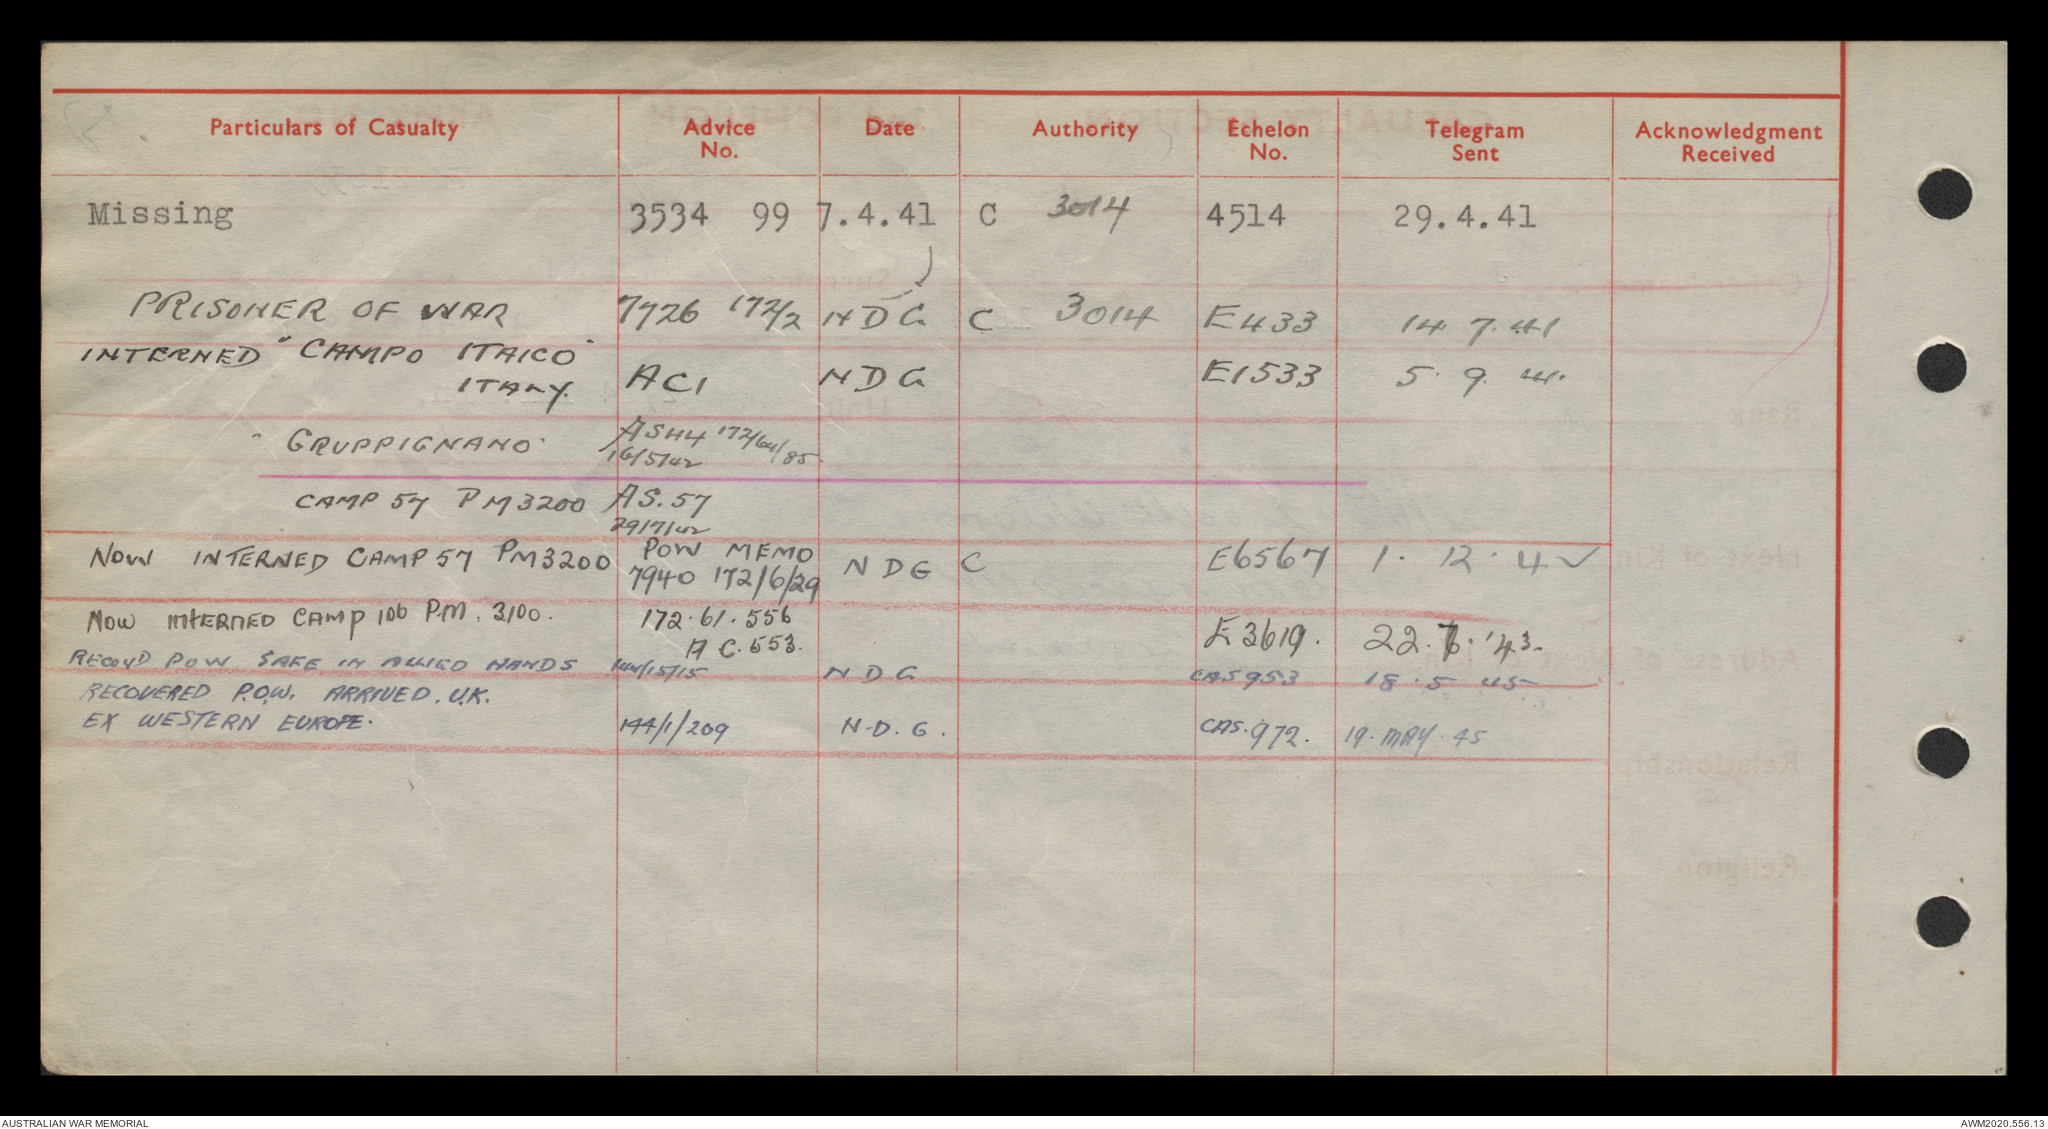 Particulars of Casualty Advice No. Date Authority Echelon No. Telegram Sent Acknowledgment Received
Missing 3534 99 7.4.41 C 3014 4514 29.4.41
PRISONER OF WAR 7726 172/2 NDG C 3014 E433 14 7.41
INTERNED "CAMPO ITAICO"
ITALY. AC1 NDG E1533 5.9.41.
" GRUPPIGNANO" AS44 172/64/85.
16/5/42
CAMP 57 PM3200 AS.57
29/7/42
NOW INTERNED CAMP 57 PM3200 POW MEMO
7940 172/6/29 NDG C E6567 1.12.42
NOW INTERNED CAMP 106 P.M. 3100. 172.61.556
A C.553. E3619. 22.7.'43.
RECOV'D POW SAFE IN ALLIED HANDS 144/15/15 NDG CAS953 18.5 45
RECOVERED P.O.W. ARRIVED. U.K.
EX WESTERN EUROPE. 144/1/209 N.D.G. CAS.972. 19.MAY.45
AUSTRALIAN WAR MEMORIAL AWM2020.556.13